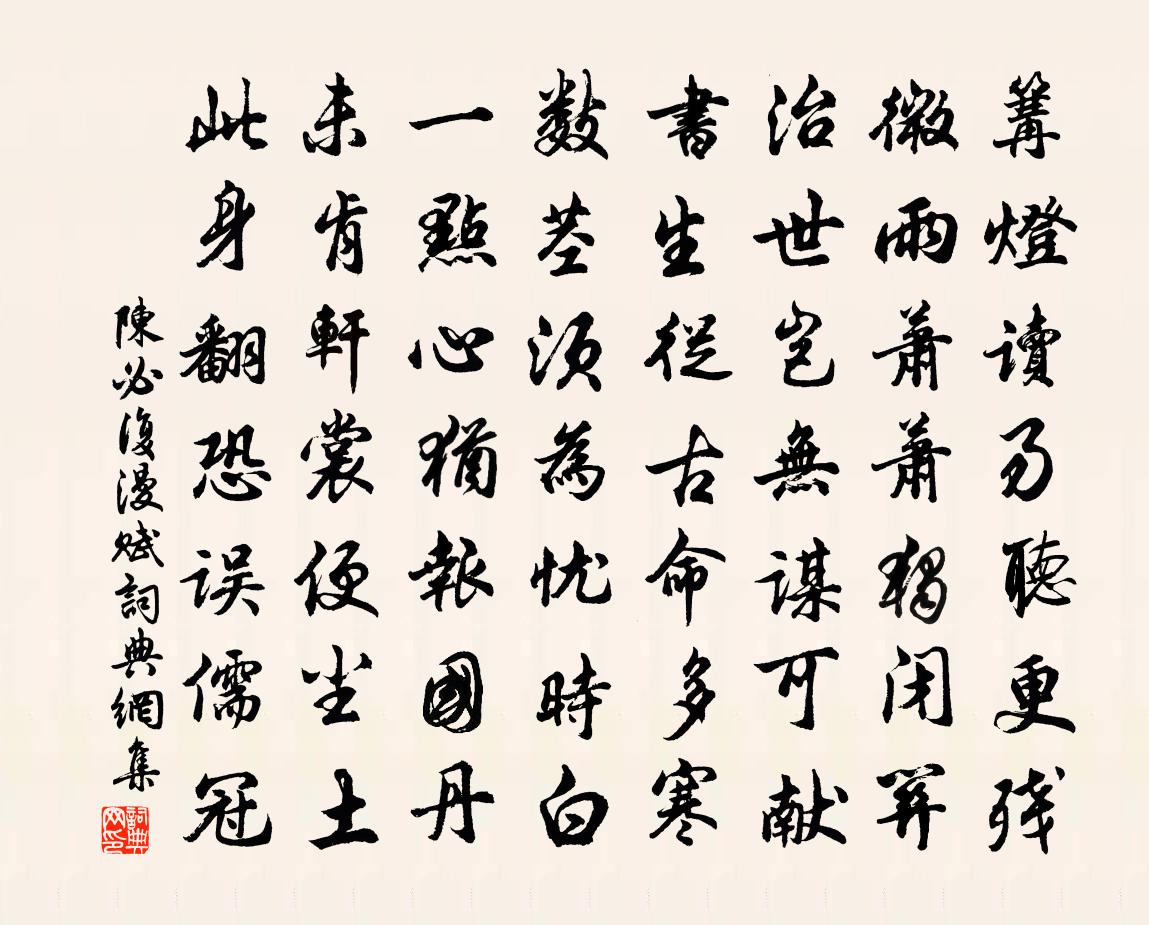 篝燈讀易聽更残
微雨蕭蕭獨闭關
治世豈無謀可献
書生從古命多寒
数莖须為忧時白
一點心猶報國丹
未肯軒裳便尘土
此身翻恐误儒冠
陳必復漫賦詞典網集
詞典網印